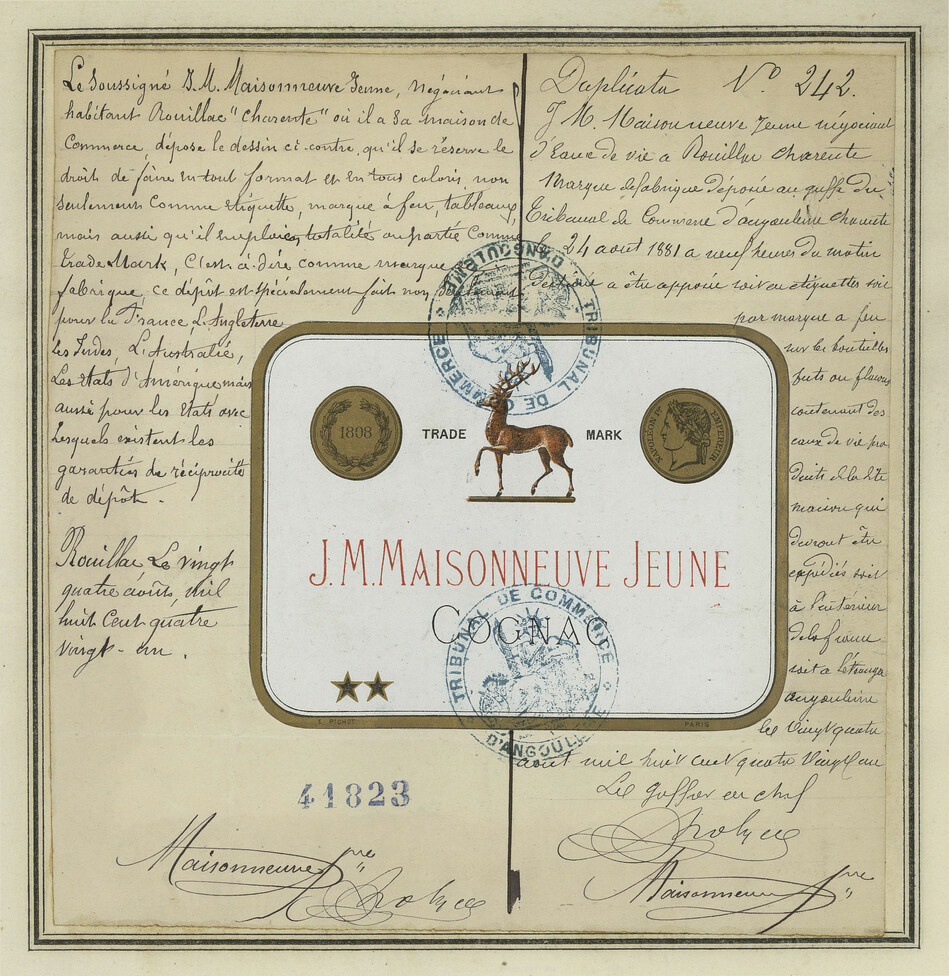 Le Soussigné J. M. Maisonneuve Jeune, négociant
habitant Rouillac "Charente" où il a sa maison de
Commerce, dépose le dessin ci-contre, qu'il se réserve le
droit de faire en tout format et en tous coloris non
seulement comme étiquette, marque à feu, tableaux,
mais aussi qu'il emploiera totalité ou partie comme
trade Mark, C'est à dire comme marque
fabrique, ce dépôt est spécialement fait non seulement
pour la France, L'Angleterre
les Indes, L'Australie,
Les états d'Amérique mais
aussi pour les états avec
lesquels existent les
garanties de réciprocité
de dépôt.
Rouillac Le vingt
quatre août, mil
huit Cent quatre
vingt-un.
41823
Maisonneuve Jne
Duplicata No 242.
J M. Maisonneuve Jeune négociant
d'Eaux de vie a Rouillac Charente
Marque de fabrique déposée au greffe du
Tribunal de Commerce d'angoulême charente
le 24 aout 1881 a neuf heures du matin
a être apposée soit en étiquettes soit
par marque a feu
sur les bouteilles
futs ou flacons
contenant des
eaux de vie pro
duits de la dite
maison qui
devront être
expédiés soit
à l'intérieur
de la france
soit a l'étranger
angoulême
le vingt quatre
aout mil huit cent quatre vingt un
Le Greffier en chef
Maisonneuve Jne
TRIBUNAL DE COMMERCE D'ANGOULÊME
1808
TRADE MARK
NAPOLEON Ier EMPEREUR
J. M. MAISONNEUVE JEUNE
COGNAC
TRIBUNAL DE COMMERCE D'ANGOULÊME
PICHOT PARIS